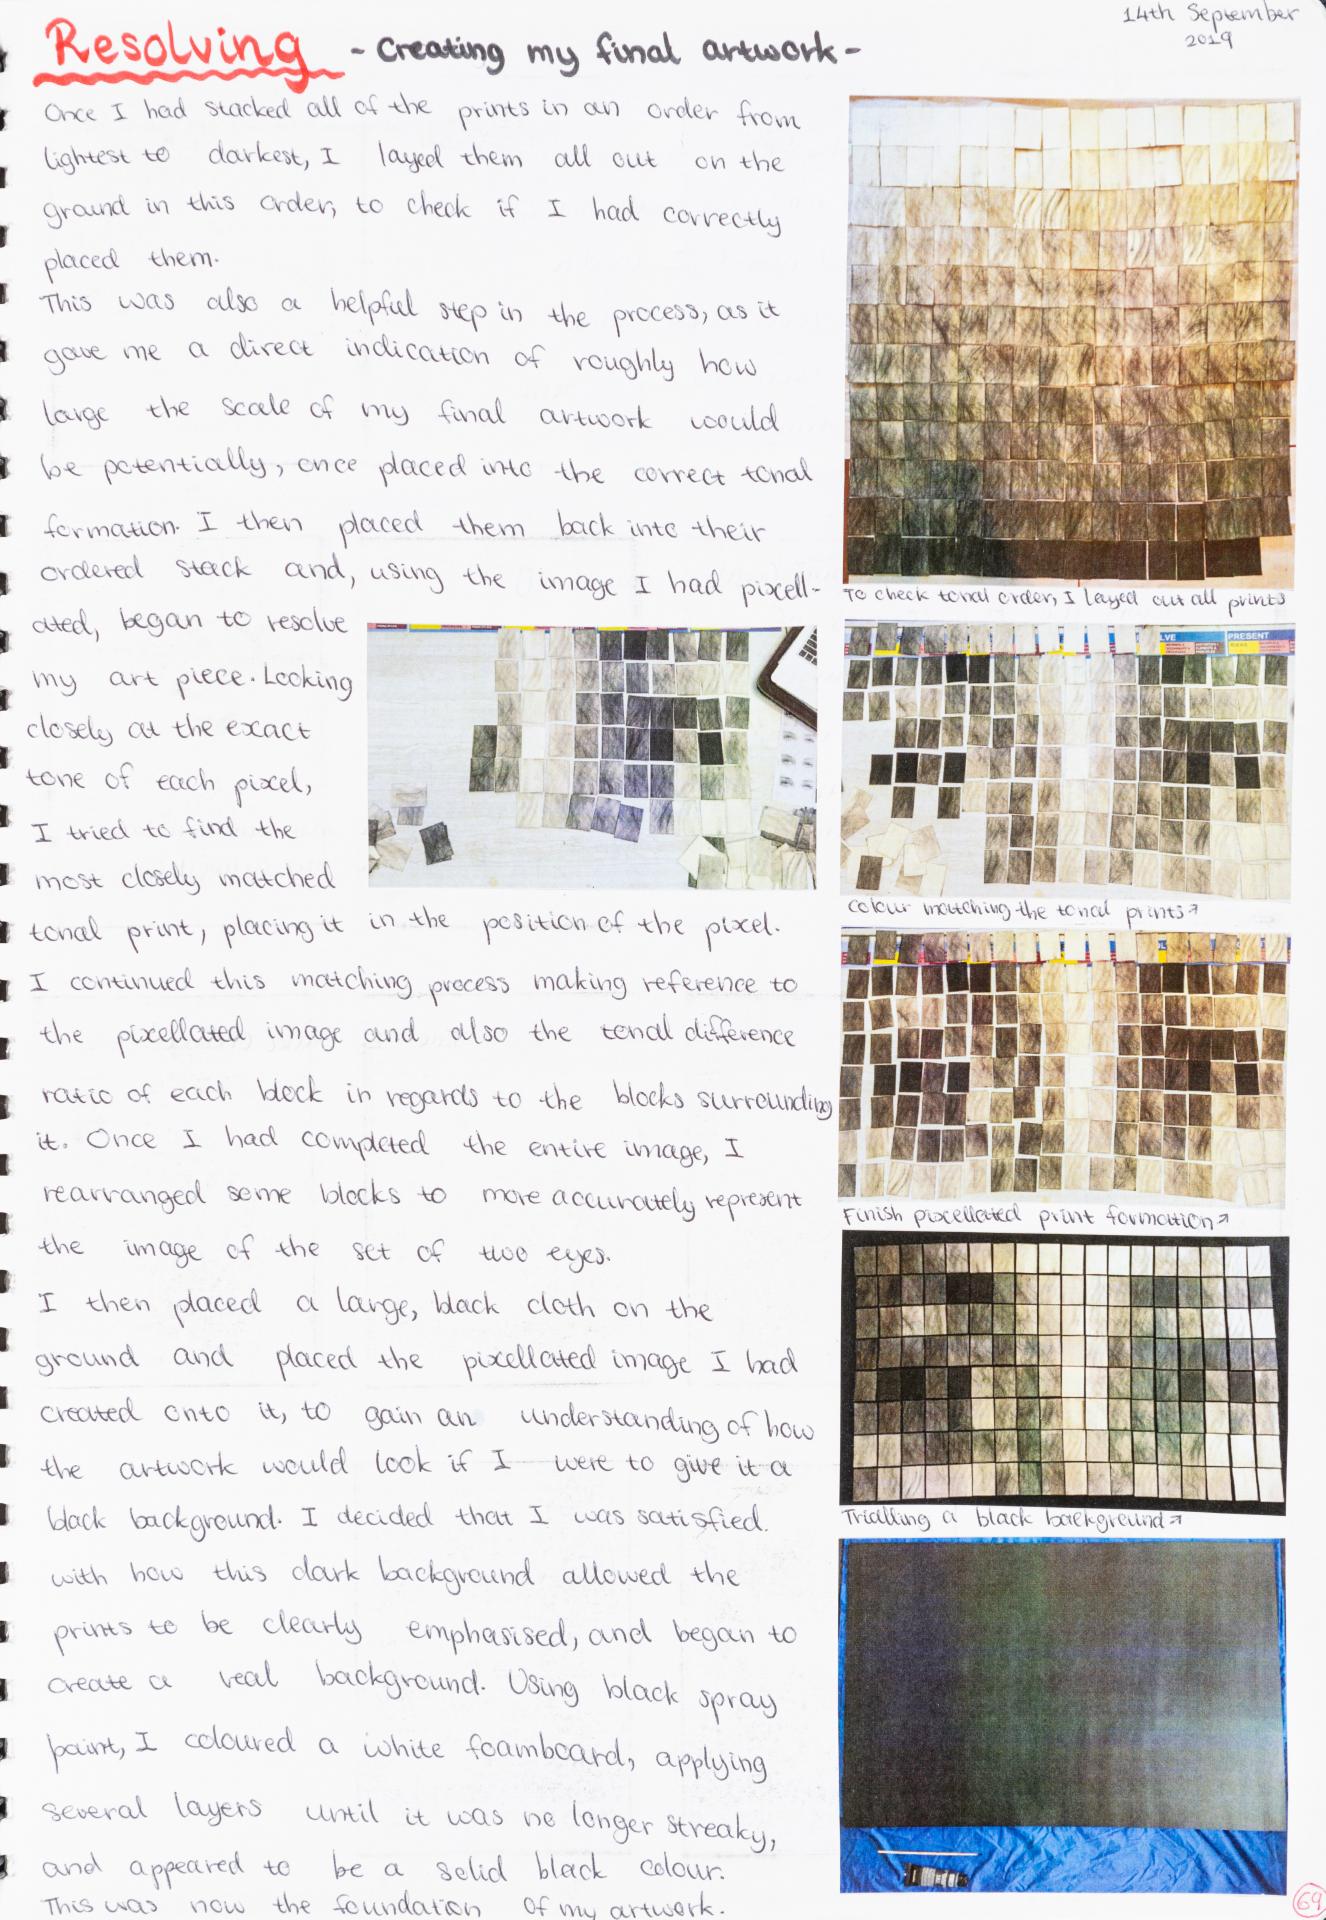 14th September
2019
Resolving - Creating my final artwork -
Once I had stacked all of the prints in an order from
lightest to darkest, I layed them all out on the
ground in this order, to check if I had correctly
placed them.
This was also a helpful step in the process, as it
gave me a direct indication of roughly how
large the scale of my final artwork would
be potentially, once placed into the correct tonal
formation. I then placed them back into their
ordered stack and, using the image I had pixcell-
ated, began to resolve
my art piece. Looking
closely at the exact
tone of each pixel,
I tried to find the
most closely matched
tonal print, placing it in the position of the pixel.
I continued this matching process making reference to
the pixcellated image and also the tonal difference
ratio of each block in regards to the blocks surrounding
it. Once I had completed the entire image, I
rearranged some blocks to more accurately represent
the image of the set of two eyes.
I then placed a large, black cloth on the
ground and placed the pixcellated image I had
created onto it, to gain an understanding of how
the artwork would look if I were to give it a
black background. I decided that I was satisfied
with how this dark background allowed the
prints to be clearly emphasised, and began to
create a real background. Using black spray
paint, I coloured a white foamboard, applying
several layers until it was no longer streaky,
and appeared to be a solid black colour.
This was now the foundation of my artwork.
To check tonal order, I layed out all prints
LVE
PRESENT
Colour matching the tonal prints↗
Finish pixcellated print formation↗
Trialling a black background↗
69